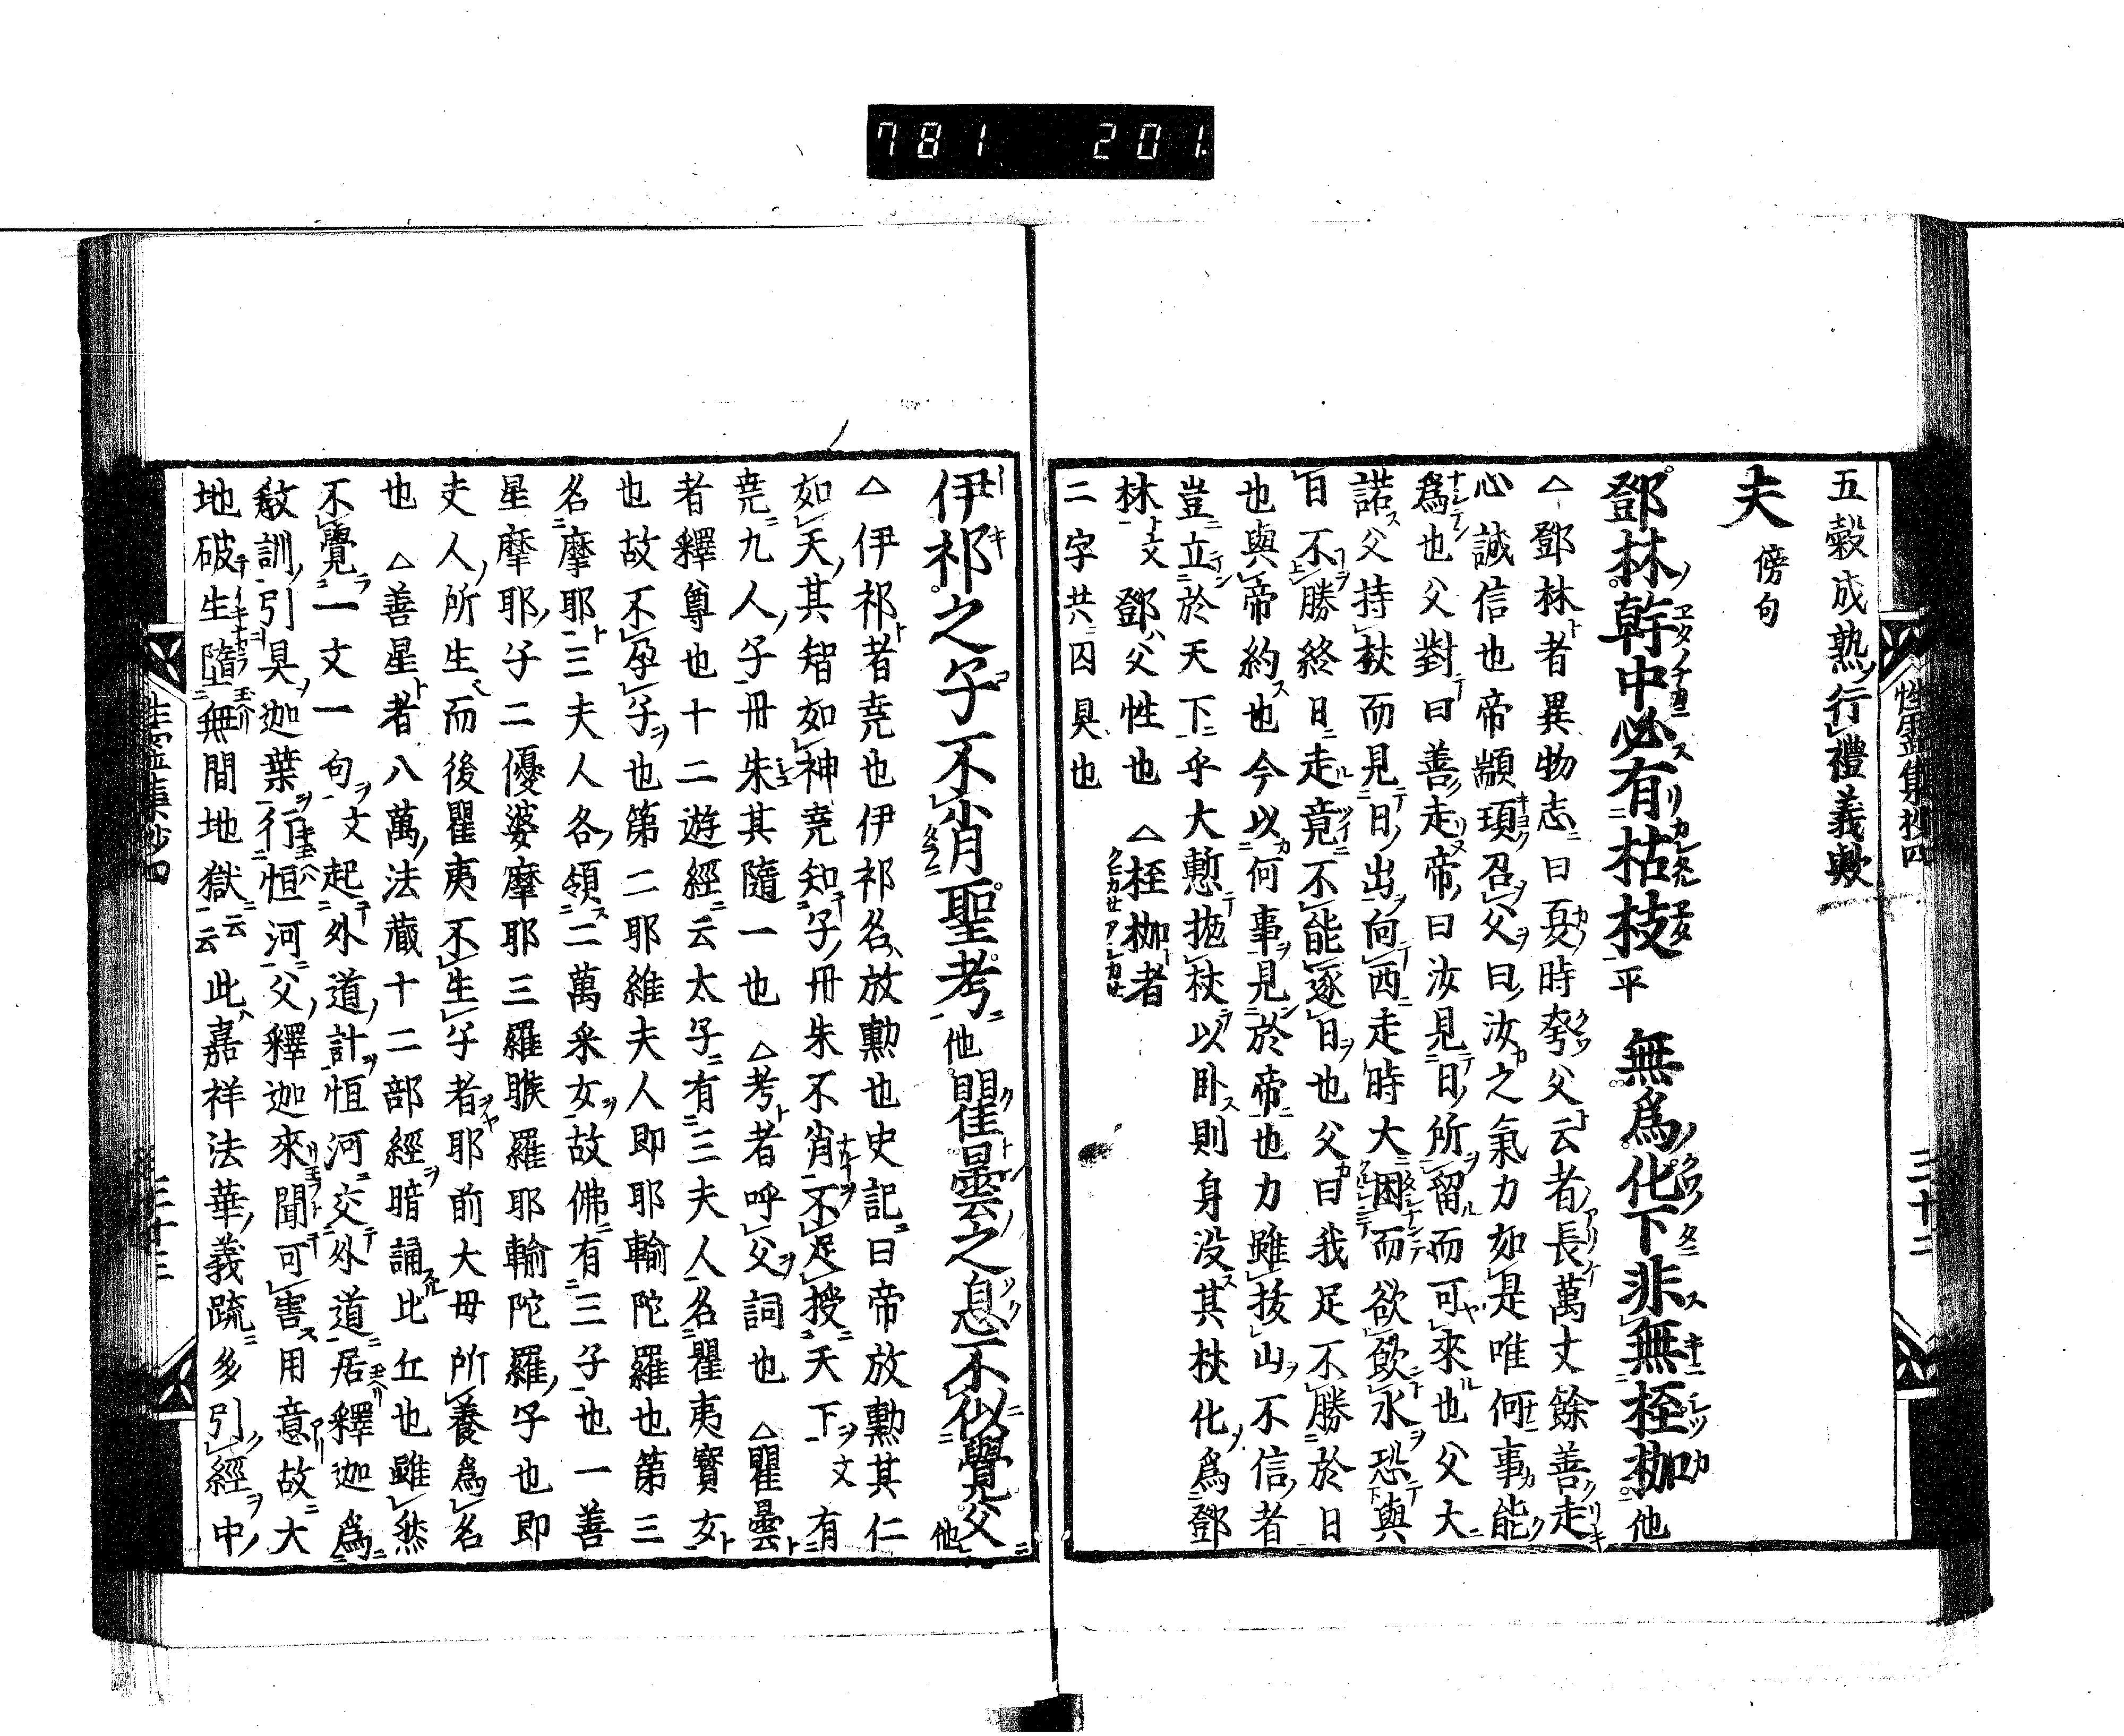 781 201
五穀成熟行禮義歟
夫 傍句
鄧林幹中必有枯枝 平 無爲化下非無桎枷 他
△鄧林者異物志曰夏時夸父云者長萬丈餘善走
心誠信也帝顓頊召父曰汝之氣力如是唯何事能
爲也父對曰善走帝曰汝見日所留而可來也父大
諾父持杖而見日出向西走時大困而欲飲水恐與
日不勝終日走竟不能逐日也父曰我足不勝於日
也與帝約也今以何事見於帝也力雖拔山不信者
豈立於天下乎大慙拖杖以卧則身没其杖化爲鄧
林文 鄧父性也 △桎枷者
二字共囚具也
性霊集抄四 三十二
伊祁之子不肖聖考 他 瞿曇之息不似覺父 他
△伊祁者尭也伊祁名放勲也史記曰帝放勲其仁
如天其智如神尭知子丹朱不肖不足授天下文 有
尭九人子丹朱其隨一也 △考者呼父詞也 △瞿曇
者釋尊也十二遊經云太子有三夫人名瞿夷寳女
也故不孕子也第二耶維夫人即耶輸陀羅也第三
名摩耶三夫人各領二萬釆女故佛有三子也一善
星摩耶子二優婆摩耶三羅睺羅耶輸陀羅子也即
夫人所生而後瞿夷不生子者耶前大母所養爲名
也 △善星者八萬法藏十二部經暗誦比丘也雖然
不覺一文一句文 起外道計恒河交外道居釋迦爲
敎訓引具迦葉行恒河父釋迦來聞可害用意故大
地破生墮無間地獄云云 此嘉祥法華義疏多引經中
性霊集抄四 三十三